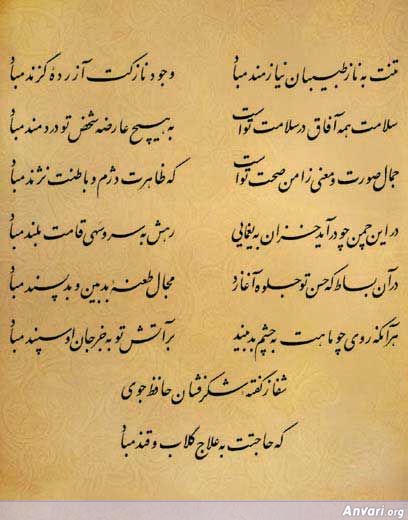 تنت به ناز طبیبان نیازمند مباد وجود نازکت آزرده گزند مباد
سلامت همه آفاق در سلامت تو است به هیچ عارضه شخص تو دردمند مباد
جمال صورت و معنی ز امن صحت تو است که ظاهرت دژم و باطنت نژند مباد
در این چمن چو درآید خزان به یغمایی رهش به سرو سهی قامت بلند مباد
در آن بساط که حسن تو جلوه آغازد مجال طعنه بدبین و بدپسند مباد
هر آنکه روی چو ماهت به چشم بد بیند بر آتش تو به جز جان او سپند مباد
شفا ز گفته شکرفشان حافظ جوی
که حاجتت به علاج گلاب و قند مباد
Anvari.org